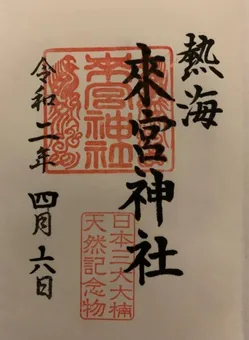 熱海
來宮神社
來宮神社
日本三大大楠
天然記念物
令和二年
四月六日